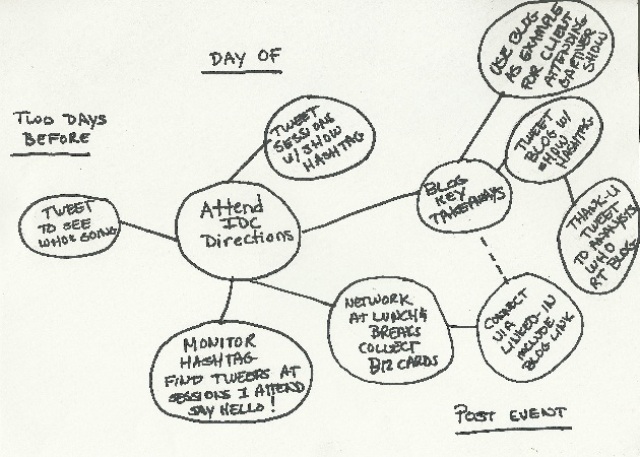 DAY OF
TWO DAYS
BEFORE
TWEET
TO SEE
WHO'S GOING
Attend
IDC
Directions
TWEET
SESSIONS
W/ SHOW
HASHTAG
MONITOR
HASHTAG
FIND TWEEPS AT
SESSIONS I ATTEND
SAY HELLO!
NETWORK
AT LUNCH &
BREAKS
COLLECT
BIZ CARDS
BLOG
KEY
TAKEAWAYS
USE BLOG
AS EXAMPLE
FOR CLIENT
ATTENDING
GARTNER
SHOW
TWEET
BLOG W/
SHOW
HASHTAG
THANK-U
TWEET
TO ANALYSTS
WHO
RT BLOG
CONNECT
VIA
LINKED-IN
INCLUDE
BLOG LINK
POST EVENT